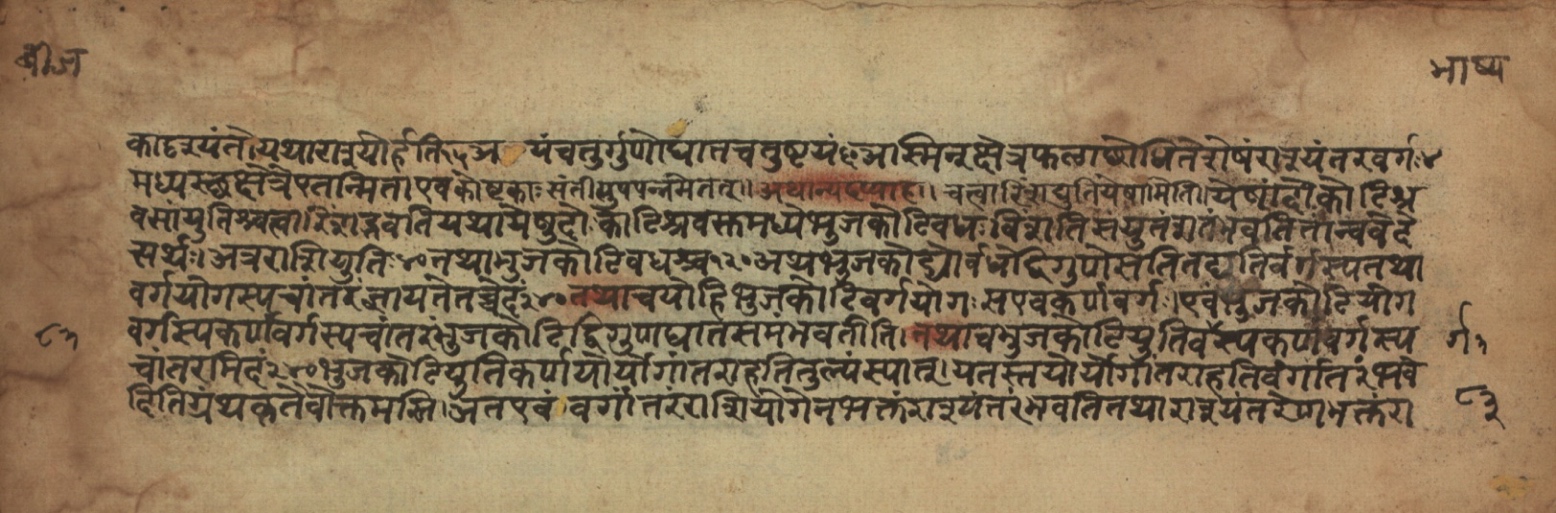 बीज
भाष्य
काद्दरयंते। यथाराश्यौर्हति १५ अ यंचतुर्गुणोघातचतुष्टयं ६ अस्मिन्क्षेत्रफलाछोधितेशेषंराश्यंतरवर्गः ४
मध्यस्छक्षेत्रेएतन्मिता एवकोष्टकाः संतीत्युपपन्नमेतत्।। अथान्यदप्याह।। चत्वारिंशद्युतिर्येषामिति। येषांदोः कोटिश्र
वसांयुतिश्चत्वारिंशद्भवतियथायेषुदोः कोटिश्रवस्तमध्येभुजकोटिवधः विंशतिसंयुतंशतंभवतितान्वदवेदे
सर्थः। अत्रराशियुतिः ४० तथाभुजकोटिवधश्च १२० अथभुजकोट्योर्वधोद्विगुणोसतितद्युतिर्वर्गस्पतथा
वर्गयोगस्पचांतरंजायतेतच्चेदं २४० तथाचयोहिभुजकोटिवर्गयोगः सएवकर्णवर्गः। एवंभुजकोटियोग
वर्गस्पकर्णवर्गस्पचांतरंभुजकोटिद्विगुणघातसमंभवतीति। तथाचभुजकोटियुतिवर्गस्पकर्णवर्गस्प
चांतरमिदं २४० भुजकोटियुतिकर्णयोर्योगांतराहतितुल्यंस्पात्। यतस्तयोर्योगांतराहतिर्वर्गांतरंभवे
दितिग्रंथकृतैवोक्तमस्ति। अतएवंवर्गांतरंराशियोगेनभक्तंराश्यंतरंभवतितथाराश्यंतरेणभक्तंरा
८३
र्ग ९
८३